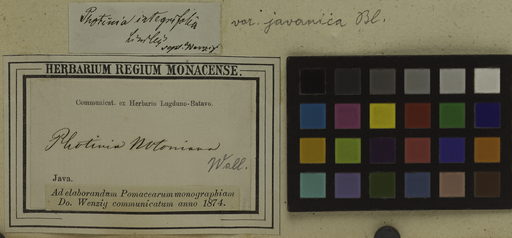 Photinia integrifolia
Lindley
sept. Wenzig
var. javanica Bl.
HERBARIUM REGIUM MONACENSE.
Communicat. ex Herbario Lugduno-Batavo.
Photinia Notoniana
Wall.
Java.
Ad elaborandum Pomacearum monographiam
Do. Wenzig communicatum anno 1874.